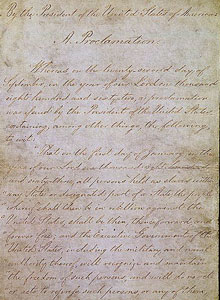 By the President of the United States of America:
A Proclamation.
Whereas, on the twenty-second day of
September, in the year of our Lord one thousand
eight hundred and sixty-two, a proclamation
was issued by the President of the United States,
containing, among other things, the following,
to wit:
"That on the first day of January, in the
year of our Lord one thousand
eight hundred and sixty-three, all persons held as slaves within
any State or designated part of a State, the people
whereof shall then be in rebellion against the
United States, shall be then, thenceforward, and
forever free; and the Executive Government of the
United States, including the military and naval
authority thereof, will recognize and maintain
the freedom of such persons, and will do no act
or acts to repress such persons, or any of them,